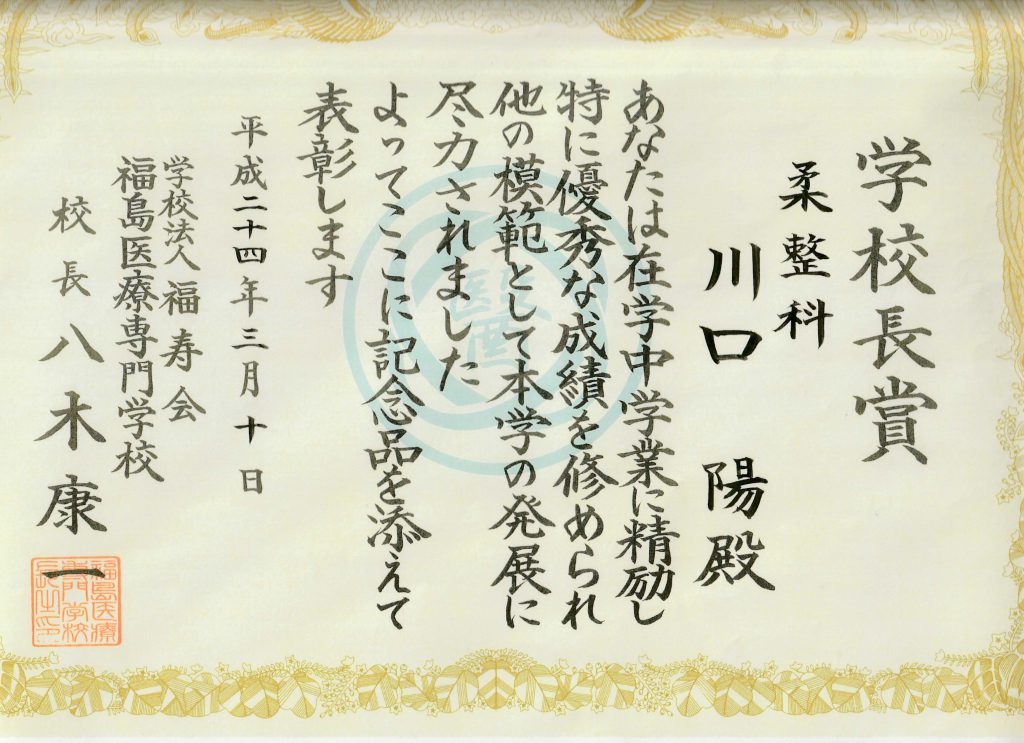 学校長賞
柔整科
川口 陽殿
あなたは在学中学業に精励し
特に優秀な成績を修められ
他の模範として本学の発展に
尽力されました
よってここに記念品を添えて
表彰します
平成二十四年三月十日
学校法人 福寿会
福島医療専門学校
校長 八木康一
福島医療
専門学校
長之印
醫